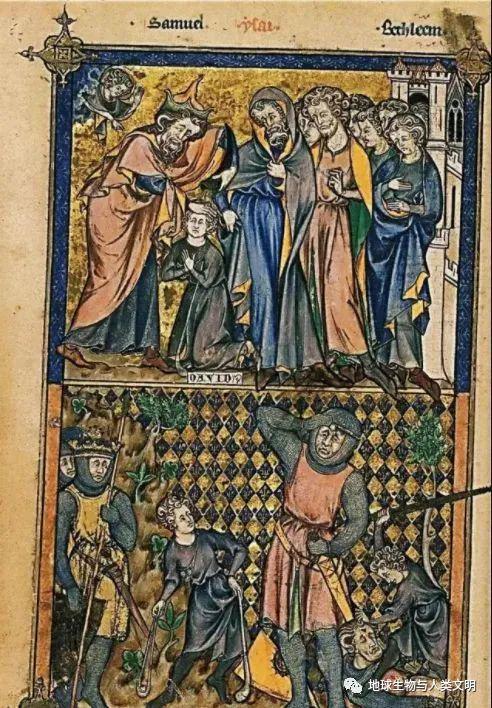 Samuel ysai Bethleem
DAVID
地球生物与人类文明